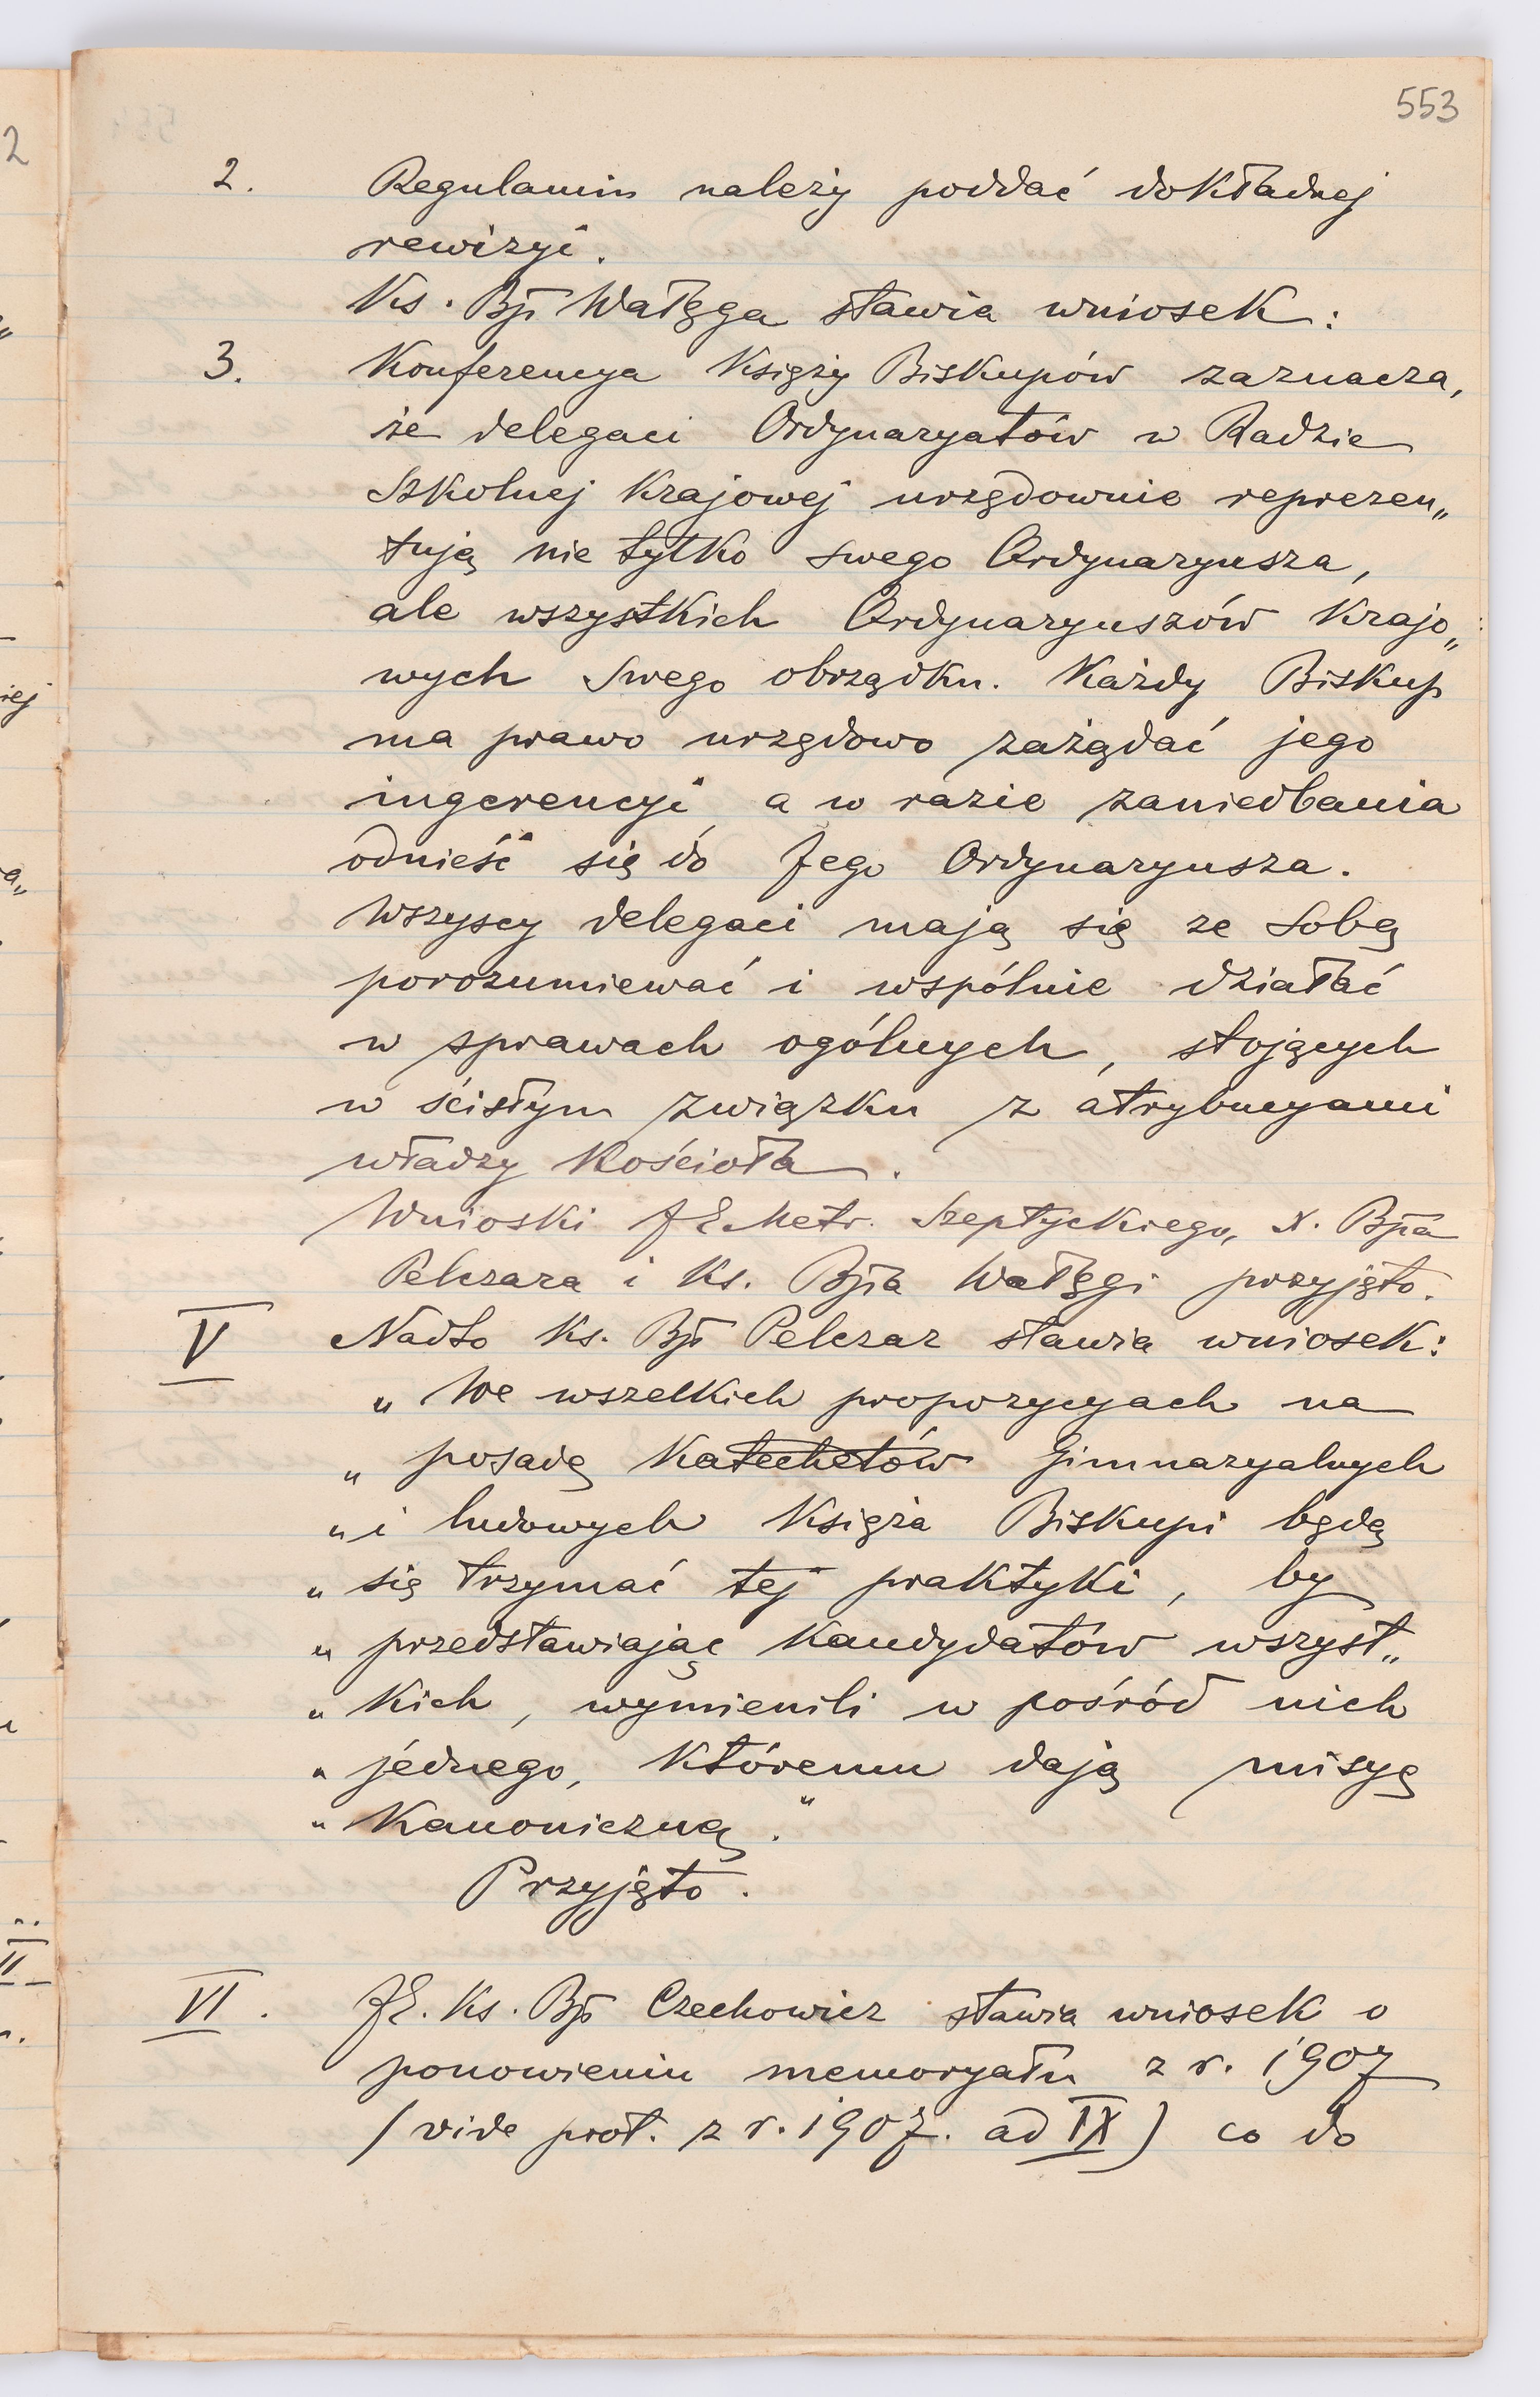 553
2. Regulamin należy poddać dokładnej
rewizyi.
Ks. Bp Wałęga stawia wniosek:
3. Konferencya Księży Biskupów zaznacza,
że delegaci Ordynaryatów w Radzie
Szkolnej Krajowej urzędownie reprezen„
tują nie tylko swego Ordynaryusza,
ale wszystkich Ordynaryuszów krajo„
wych swego obrządku. Każdy Biskup
ma prawo urzędowo zażądać jego
ingerencyi a w razie zaniedbania
odnieść się do Jego Ordynaryusza.
Wszyscy delegaci mają się ze sobą
porozumiewać i wspólnie działać
w sprawach ogólnych, stojących
w ścisłym związku z atrybucyami
władzy Kościoła.
Wnioski JE Metr. Szeptyckiego, X. Bpa
Pelczara i Ks. Bpa Wałęgi przyjęto.
V Nadto Ks. Bp Pelczar stawia wniosek:
„ We wszelkich propozycyach na
„ posadę Katechetów Gimnazyalnych
„ i ludowych Księża Biskupi będą
„ się trzymać tej praktyki, by
„ przedstawiając kandydatów wszyst„
„ kich, wymienili w pośród nich
„ jednego, któremu dają misyę
„ Kanoniczną."
Przyjęto.
VI. JE. Ks. Bp Czechowicz stawia wniosek o
ponowieniu memoryału z r. 1907
(vide prot. z r. 1907. ad IX) co do